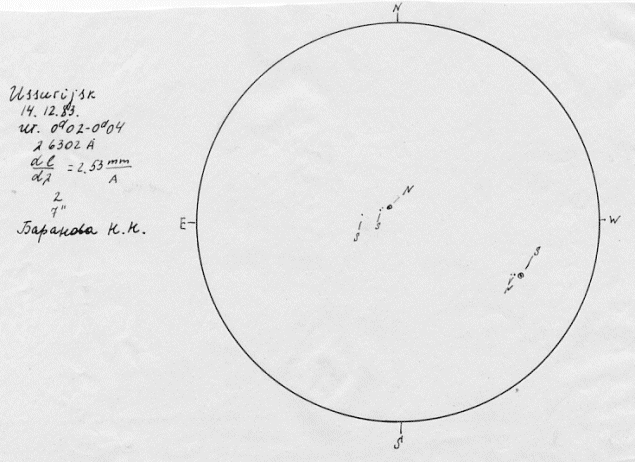 N
Ussurijsk
14. 12. 83.
UT. 0ᵈ02-0ᵈ04
λ 6302 Å
dl/dλ = 2,53 mm/A
2
7"
Баранова Н.Н.
E
W
N
S
S
S
N
S